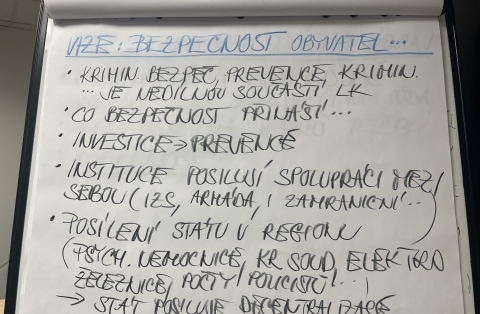 VIZE: BEZPEČNOST OBYVATEL...
• KRIMIN. BEZPEČ, PREVENCE KRIMIN.
... JE NEDÍLNOU SOUČÁSTÍ LK
• CO BEZPEČNOST PŘINÁŠÍ...
• INVESTICE → PREVENCE
• INSTITUCE POSILUJÍ SPOLUPRÁCI MEZI
SEBOU (IZS, ARMÁDA, I ZAHRANIČNÍ...)
• POSÍLENÍ STÁTU V REGIONU
(PSYCH. NEMOCNICE, KR. SOUD, ELEKTRO
ŽELEZNICE, POČTY POLICISTŮ...)
→ STÁT POSILUJE DECENTRALIZACE